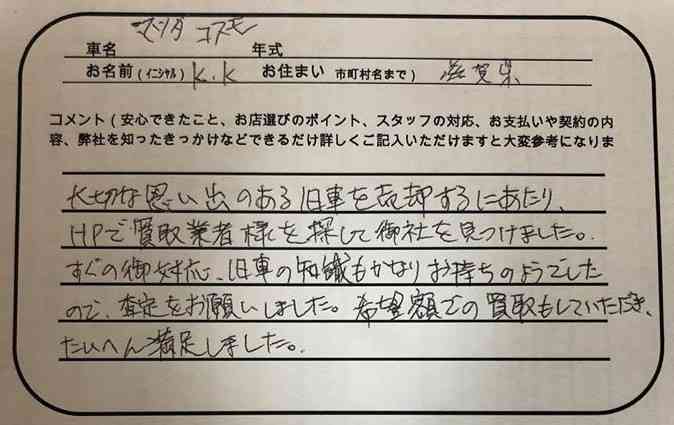 マツダ コスモ
車名 年式
お名前(イニシャル) K.K お住まい 市町村名まで) 滋賀県
コメント(安心できたこと、お店選びのポイント、スタッフの対応、お支払いや契約の内
容、弊社を知ったきっかけなどできるだけ詳しくご記入いただけますと大変参考になりま
大切な思い出のある旧車を売却するにあたり、
HPで買取業者様を探して御社を見つけました。
すぐの御対応、旧車の知識もかなりお持ちのようでした
ので、査定をお願いしました。希望額での買取もしていただき、
たいへん満足しました。